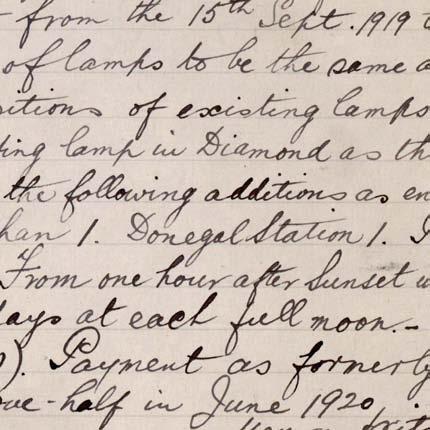 from the 15th Sept. 1919
of lamps to be the same a
sitions of existing lamps
ting lamp in Diamond as th
the following additions as en
han 1. Donegal Station 1.
From one hour after Sunset u
days at each full moon.-
). Payment as formerly
one-half in June 1920.